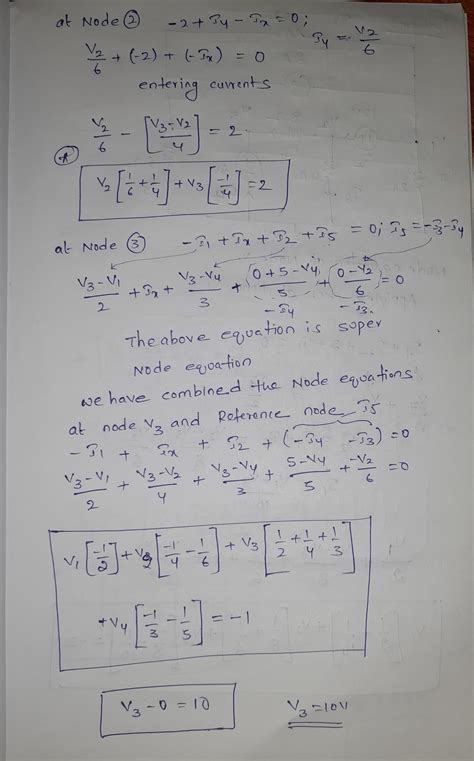 at Node ② -2 + I4 - Ix = 0; I4 = V2/6
V2/6 + (-2) + (-Ix) = 0
entering currents
V2/6 - [V3-V2/4] = 2
Ⓐ V2 [1/6 + 1/4] + V3 [-1/4] = 2
at Node ③ -I1 + Ix + I2 + I5 = 0; I5 = -I3-I4
V3-V1/2 + Ix + V3-V4/3 + (0+5-V4/5) + (0-V2/6) = 0
-I4 -I3
The above equation is super
Node equation
we have combined the Node equations
at node V3 and Reference node I5
-I1 + Ix + I2 + (-I4 -I3) = 0
V3-V1/2 + V3-V2/4 + V3-V4/3 + 5-V4/5 + -V2/6 = 0
V1 [-1/2] + V2 [-1/4 - 1/6] + V3 [1/2 + 1/4 + 1/3]
+V4 [-1/3 - 1/5] = -1
V3 - 0 = 10 V3 = 10V